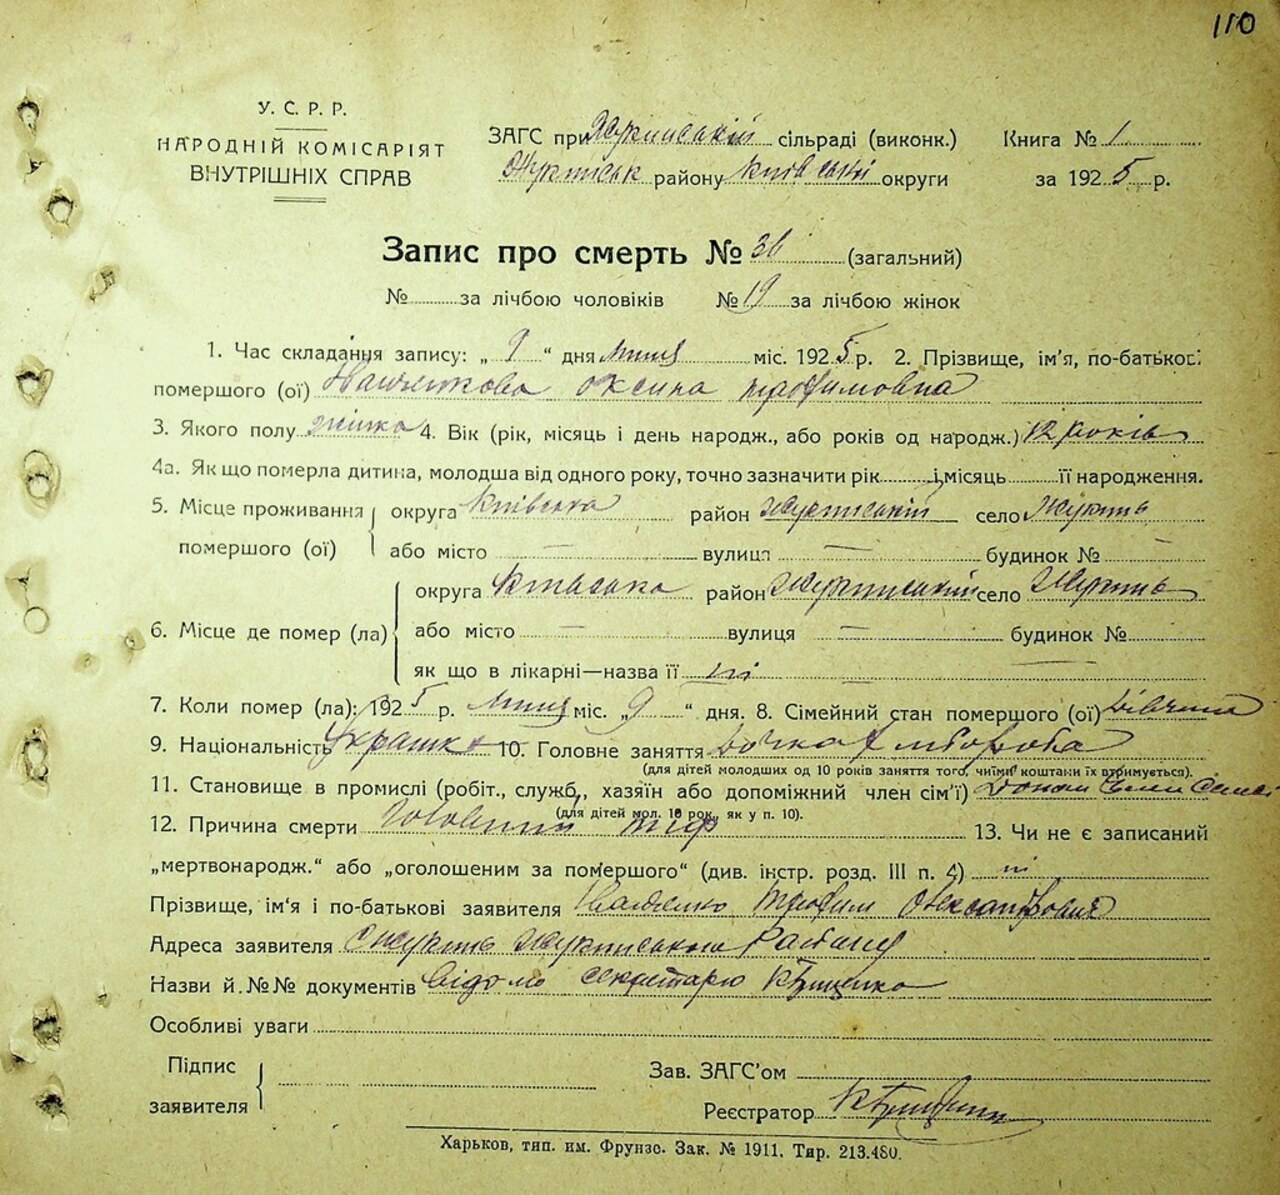 110
У. С. Р. Р.
НАРОДНІЙ КОМІСАРІЯТ
ВНУТРІШНІХ СПРАВ
ЗАГС при Жукинській сільраді (виконк.)
Жукинськ району Київської округи
Книга № 1
за 1925 р.
Запис про смерть № 36 (загальний)
№ за лічбою чоловіків № 19 за лічбою жінок
1. Час складання запису: „9“ дня міс. 1925 р. 2. Прізвище, ім'я, по-батькові
помершого (ої) Оксина Трофимовна
3. Якого полу жінка 4. Вік (рік, місяць і день народж., або років од народж.) 12 років
4а. Як що померла дитина, молодша від одного року, точно зазначити рік і місяць її народження.
5. Місце проживання помершого (ої) округа Київська район Жукинський село Жукинь
або місто — вулиця — будинок № —
6. Місце де помер (ла) округа Київська район Жукинський село Жукинь
або місто — вулиця — будинок №
як що в лікарні—назва її ні
7. Коли помер (ла): 1925 р. міс. „9“ дня. 8. Сімейний стан помершого (ої) Дівчина
9. Національність Украінка 10. Головне заняття Дочка хлібороба
(для дітей молодших од 10 років заняття того, чиїми коштами їх втримується).
11. Становище в промислі (робіт., службов., хазяїн або допоміжний член сім'ї) Допом член семьі
(для дітей мол. 10 рок. як у п. 10).
12. Причина смерти Головний тиф 13. Чи не є записаний
„мертвонародж.“ або „оголошеним за помершого“ (див. інстр. розд. III п. 4) ні
Прізвище, ім'я і по-батькові заявителя Трофим Олександрович
Адреса заявителя с Жукинь Жукинського Району
Назви й №№ документів Відомо секретарю К Грищенко
Особливі уваги
Підпис заявителя
Зав. ЗАГС'ом
Реєстратор К Грищенко
Харьков, тип. им. Фрунзе. Зак. № 1911. Тир. 213.480.